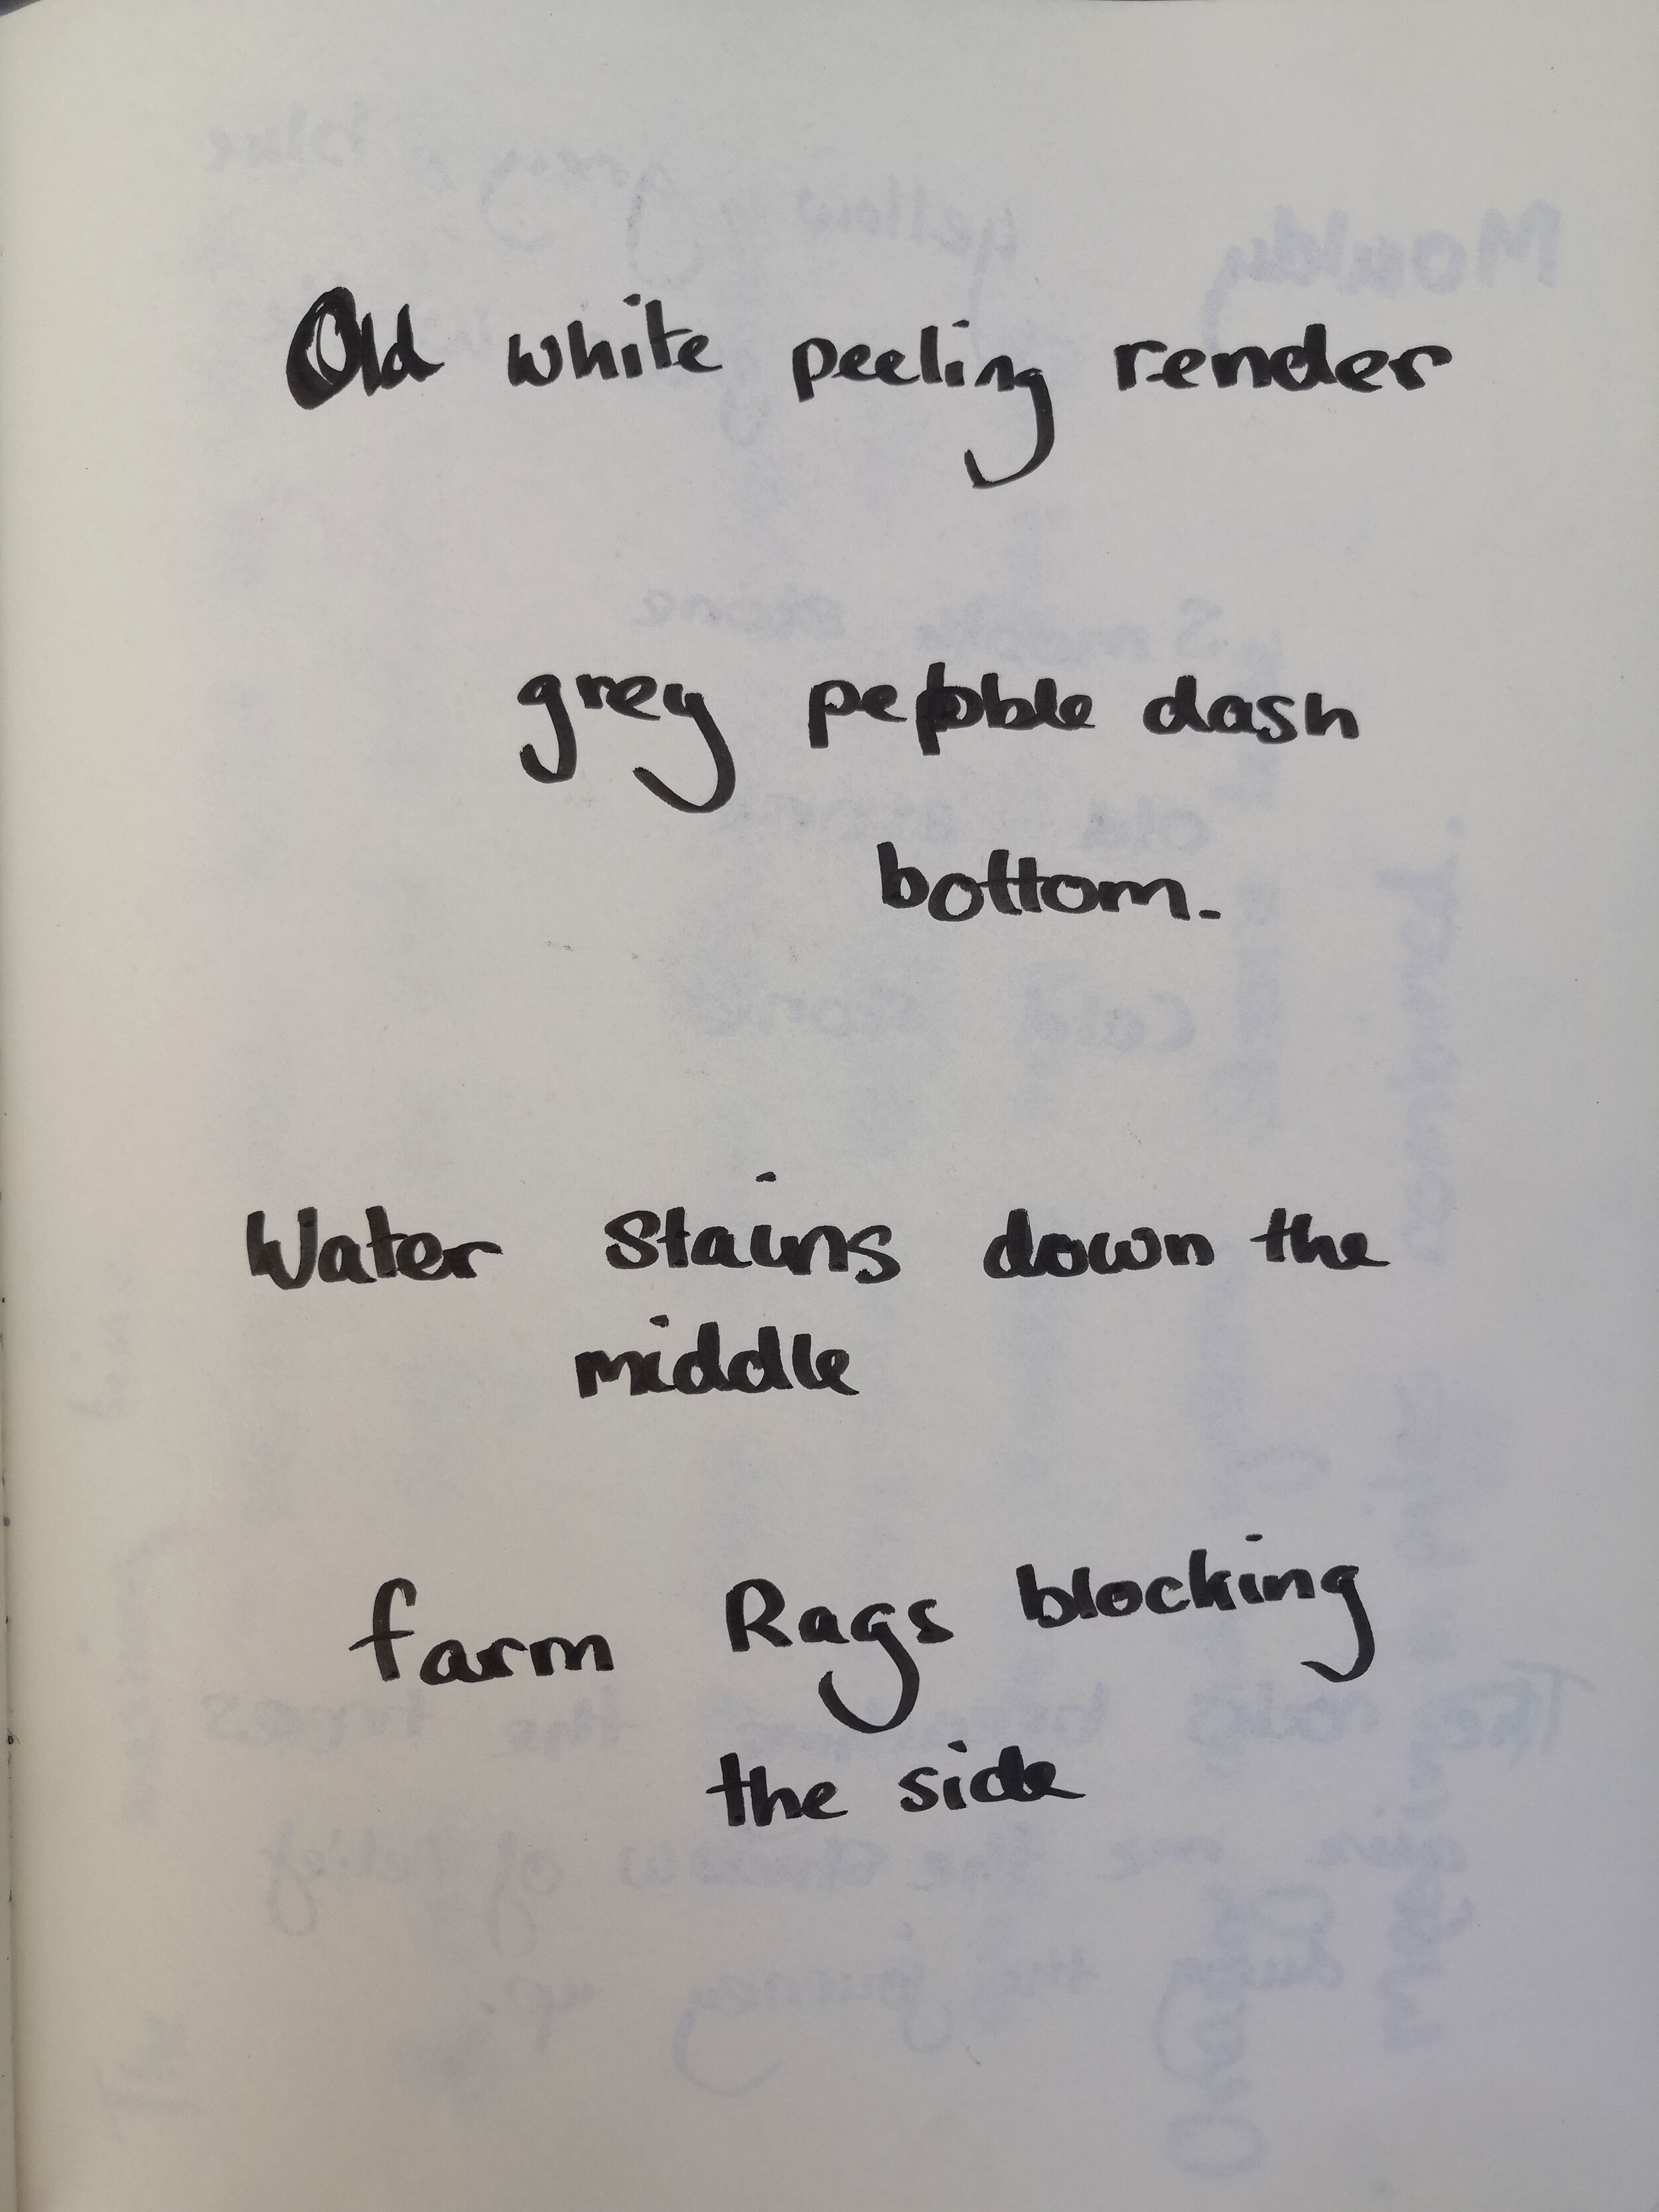 Old white peeling render
grey pebble dash
bottom.
Water Stains down the
middle
farm Rags blocking
the side